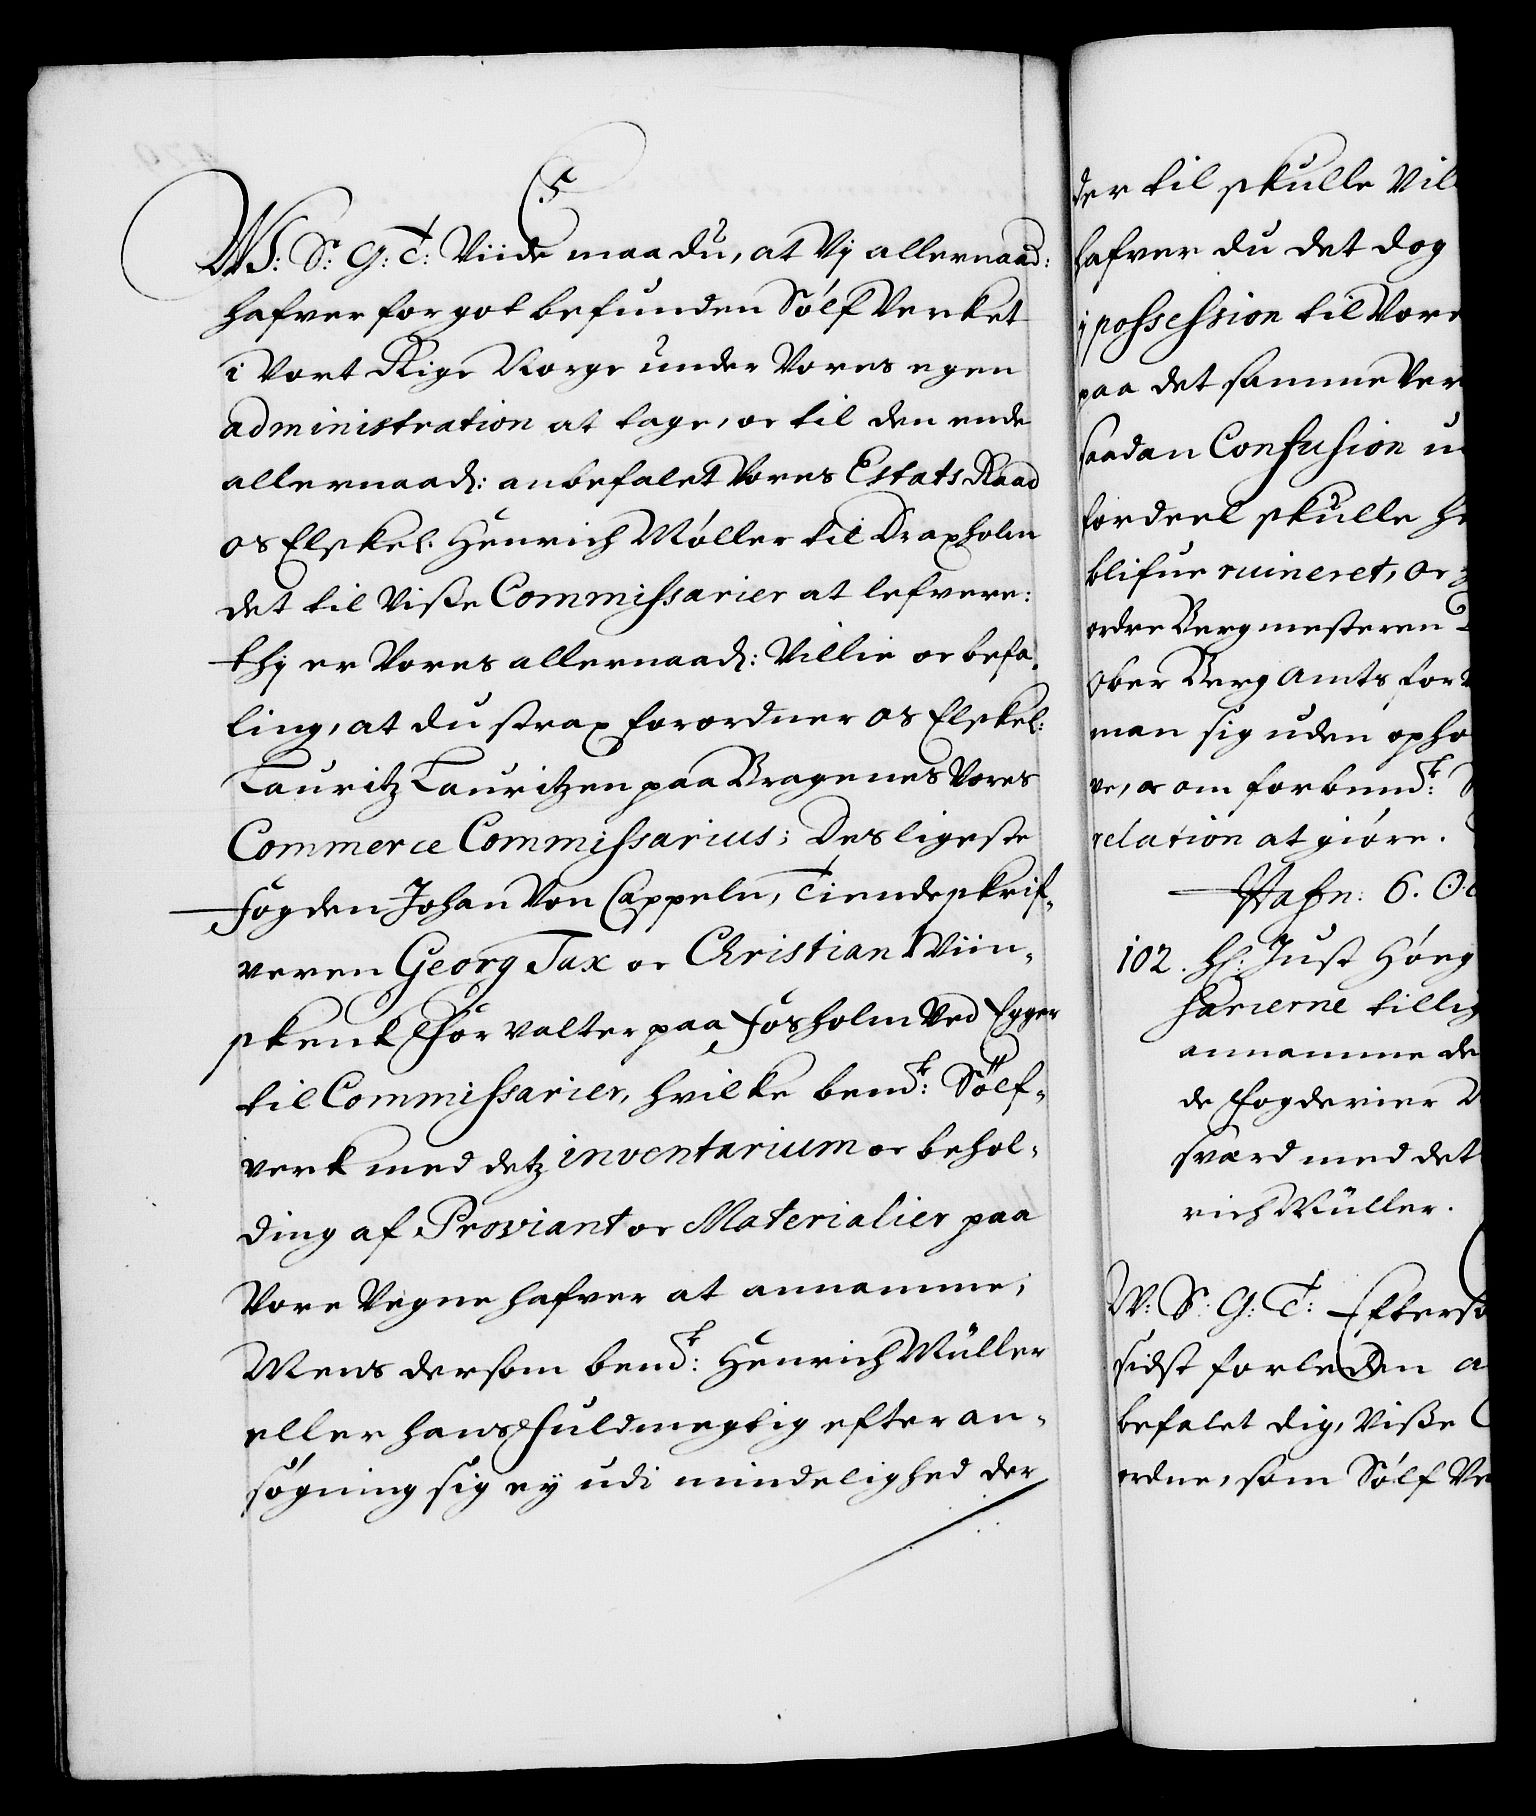 W: S: G: T: Viide maa du, at Vj allernaad:
hafver for got befunden Sölf Verket
i Vort Rige Norge under Vores egen
administration at tage, oc til den ende
allernaad: anbefalet Vores Estats Raad
os Elskel. Henrich Møller til Draxholm
det til Viße Commissarier at lefvere:
thj er Vores allernaad: Villie oc befa¬
ling, at du strax forordner os Elskel:
Lauritz Lauritzen paa Bragenes Vores
Commerce Commissarius; Des ligeste
Fogden Johan Von Cappeln, Tiendeskrif¬
veren Georg Tax oc Christian Wiin¬
skenk Forvalter paa Fosholm Ved Egger
til Commissarier, hvilke bemd:te Sölf¬
verk med detz inventarium oc behol¬
ding af Proviant oc Materialier paa
Vore Vegne hafver at annamme;
Mens dersom bemd:te Henrich Müller
eller hans Fuldmegtig efter an¬
søgning sig ey udi mindelighed der
der til skulle Vil
hafver du det dog
j possession til Vore
paa det samme Ver
saadan Confusion u
fordeel skulle h
blifve ruineret, oc
ordre Bergmesteren
Ober Berg Amts for
man sig uden opho
ve, oc om forbemd:te
relation at giöre.
Hafn: 6. Oc
102. H: Just Höeg
sarierne tillig
annamme de
de Fogderier
sværd med det
rich Müller.
W: S: G: T: Efterso
sidst forleden a
befalet dig, Viße
ordne, som Sölf Ve